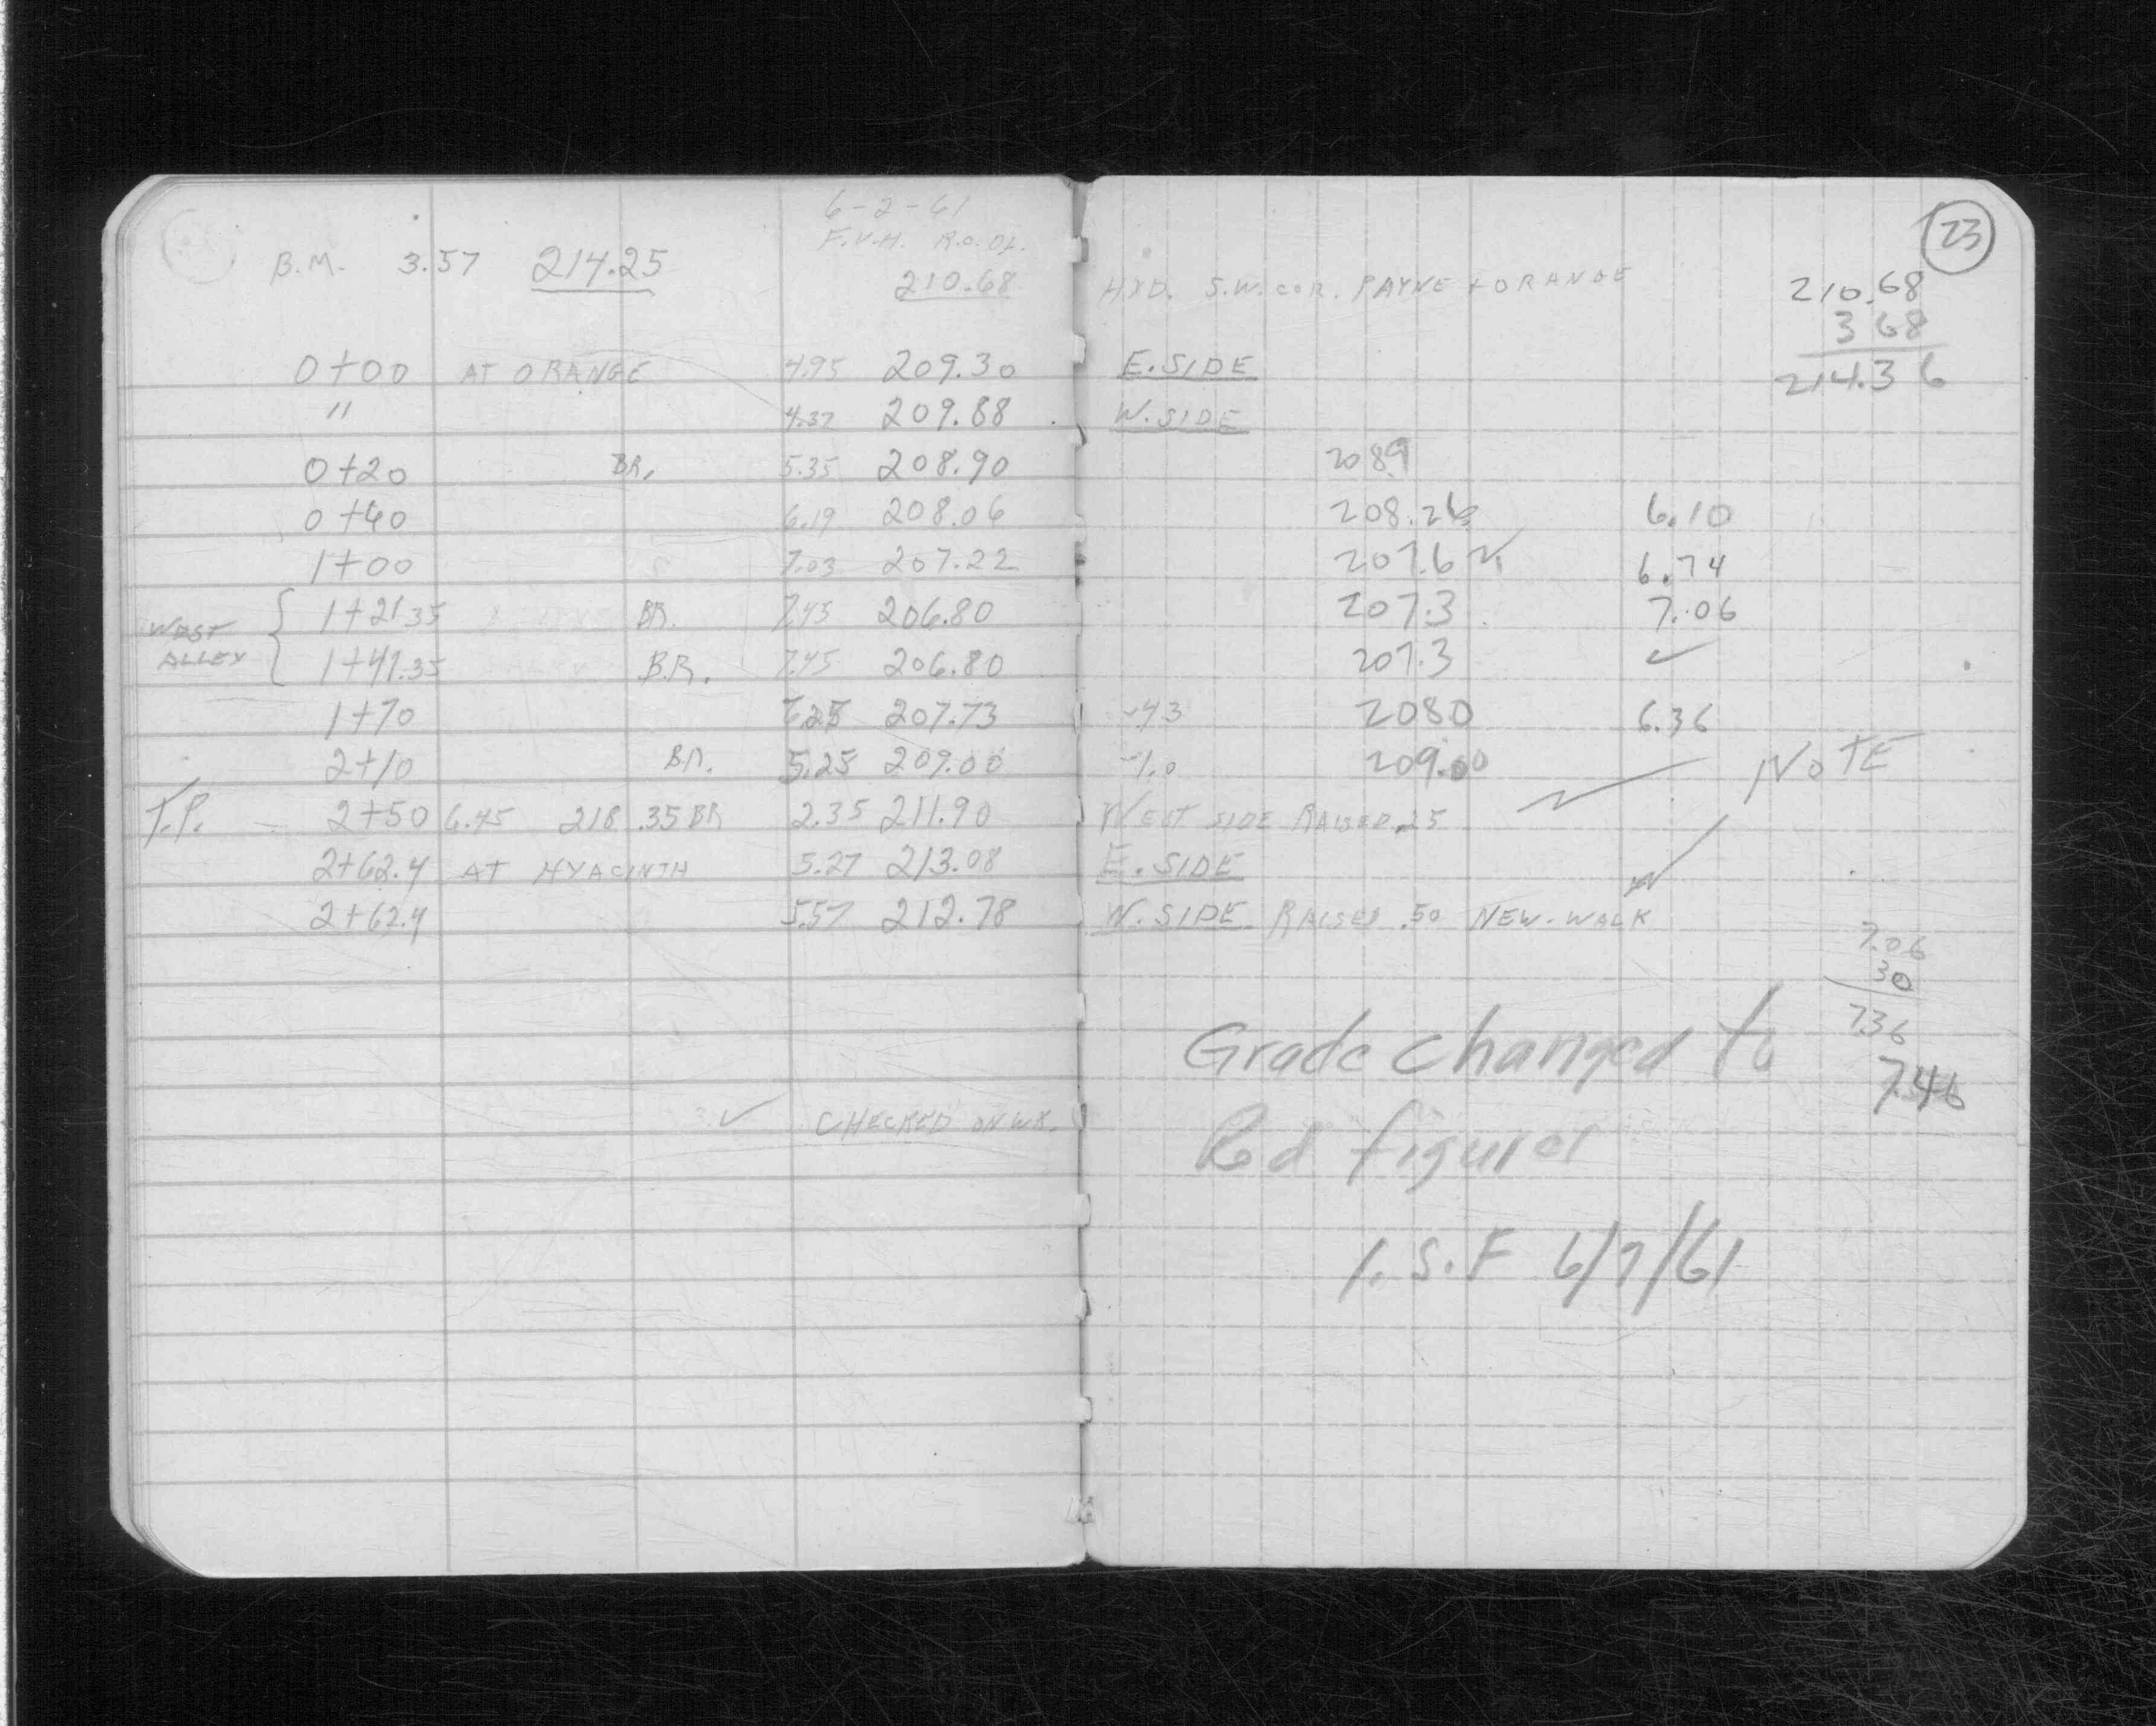 6-2-61
F.V.H. R.O.DL.
B.M. 3.57 214.25 210.68
0+00 AT ORANGE 4.95 209.30
" 4.37 209.88
0+20 BR. 5.35 208.90
0+60 6.19 208.06
1+00 7.03 207.22
WEST ALLEY { 1+21.35 BR. 7.45 206.80
1+41.35 B.R. 7.45 206.80
1+70 207.73
2+10 BR. 5.25 209.00
T.P. - 2+50 6.45 218.35 BR 2.35 211.90
2+62.4 AT HYACINTH 5.27 213.08
2+62.4 5.57 212.78
✓ CHECKED ON WK.
23
HYD. S.W. COR. PAYNE + ORANGE
210.68
3 68
214.36
E. SIDE
W. SIDE
2089
208.26 6.10
207.62 6.74
207.3 7.06
207.3 ✓
-.43 2080 6.36
-1.0 209.00
NOTE
WEST SIDE RAISED .25
E. SIDE
W. SIDE RAISED .50 NEW-WALK
7.06
30
7.36
7.46
Grade changed to
Red figures
I.S.F 6/7/61